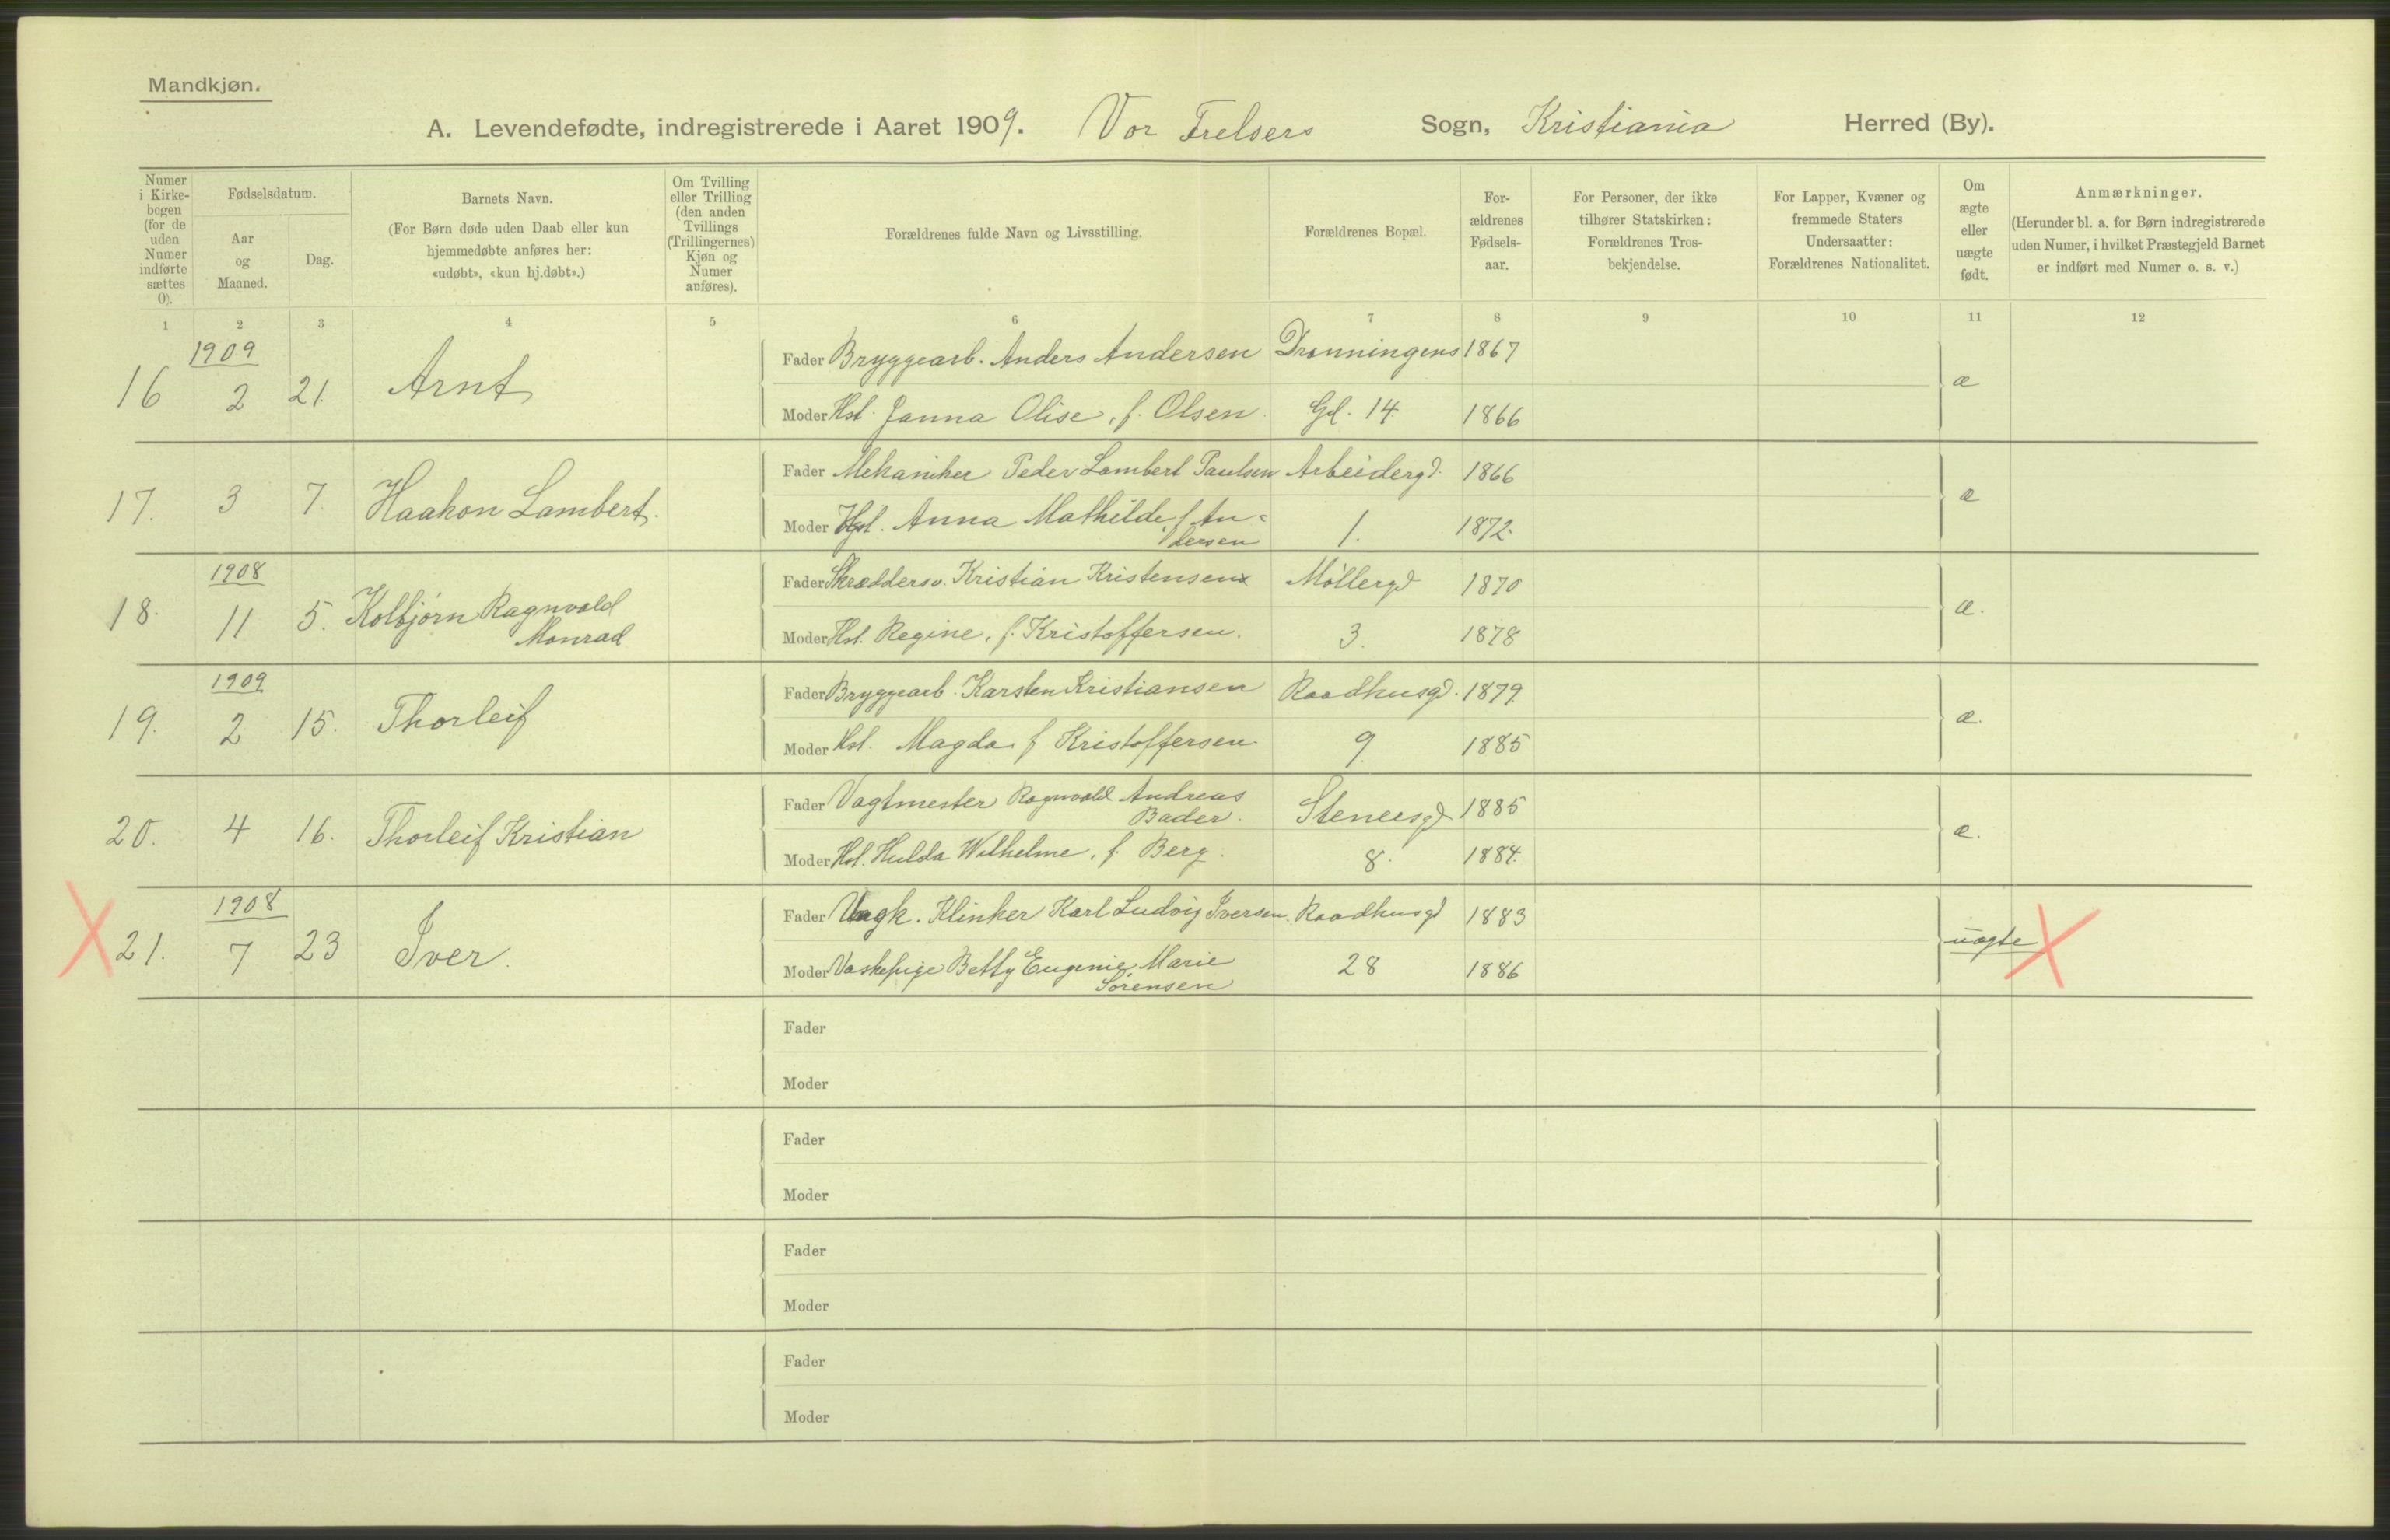 Mandkjøn.
A. Levendefødte, indregistrerede i Aaret 1909. Vor Frelsers Sogn, Kristiania Herred (By).
Numer i Kirke-bogen (for de uden Numer indførte sættes 0).
Fødselsdatum.
Aar og Maaned.
Dag.
Barnets Navn.
(For Børn døde uden Daab eller kun
hjemmedøbte anføres her:
«udøbt», «kun hj.døbt».)
Om Tvilling
eller Trilling
(den anden
Tvillings
(Trillingernes)
Kjøn og
Numer
anføres).
Forældrenes fulde Navn og Livsstilling.
Forældrenes Bopæl.
For-
ældrenes
Fødsels-
aar.
For Personer, der ikke
tilhører Statskirken:
Forældrenes Tros-
bekjendelse.
For Lapper, Kvæner og
fremmede Staters
Undersaatter:
Forældrenes Nationalitet.
Om
ægte
eller
uægte
født.
Anmærkninger.
(Herunder bl. a. for Børn indregistrerede
uden Numer, i hvilket Præstegjeld Barnet
er indført med Numer o. s. v.)
1 2 3 4 5 6 7 8 9 10 11 12
1909
16 2 21. Arnt
Fader Bryggearb. Anders Andersen Dronningens 1867
æ
Moder Hst. Janna Olise, f. Olsen. Gd. 14. 1866
17. 3 7. Haakon Lambert.
Fader Mekaniker Peder Lambert Paulsen Arbeidergd. 1866
æ
Moder Hst. Anna Mathilde, f. An=
dersen 1. 1872.
1908
18. 11 5. Kolbjørn Ragnvald
Monrad
Fader Skræddersv. Kristian Kristensen Møllergd 1870
æ.
Moder Hst. Regine, f. Kristoffersen. 3. 1878
1909
19. 2 15. Thorleif
Fader Bryggearb. Karsten Kristiansen Raadhusgd. 1879.
æ.
Moder Hst. Magda, f. Kristoffersen 9. 1885
20. 4 16. Thorleif Kristian
Fader Vagtmester Ragnvald Andreas
Bader. Stenersgd 1885
æ.
Moder Hst. Hulda Wilhelme, f. Berg. 8. 1884.
1908
21. 7 23 Iver.
Fader Ungk. Klinker Karl Ludvig Iversen. Raadhusgd 1883
uægte
Moder Vaskepige Betty Eugenie Marie
Sørensen 28 1886
Fader
Moder
Fader
Moder
Fader
Moder
Fader
Moder